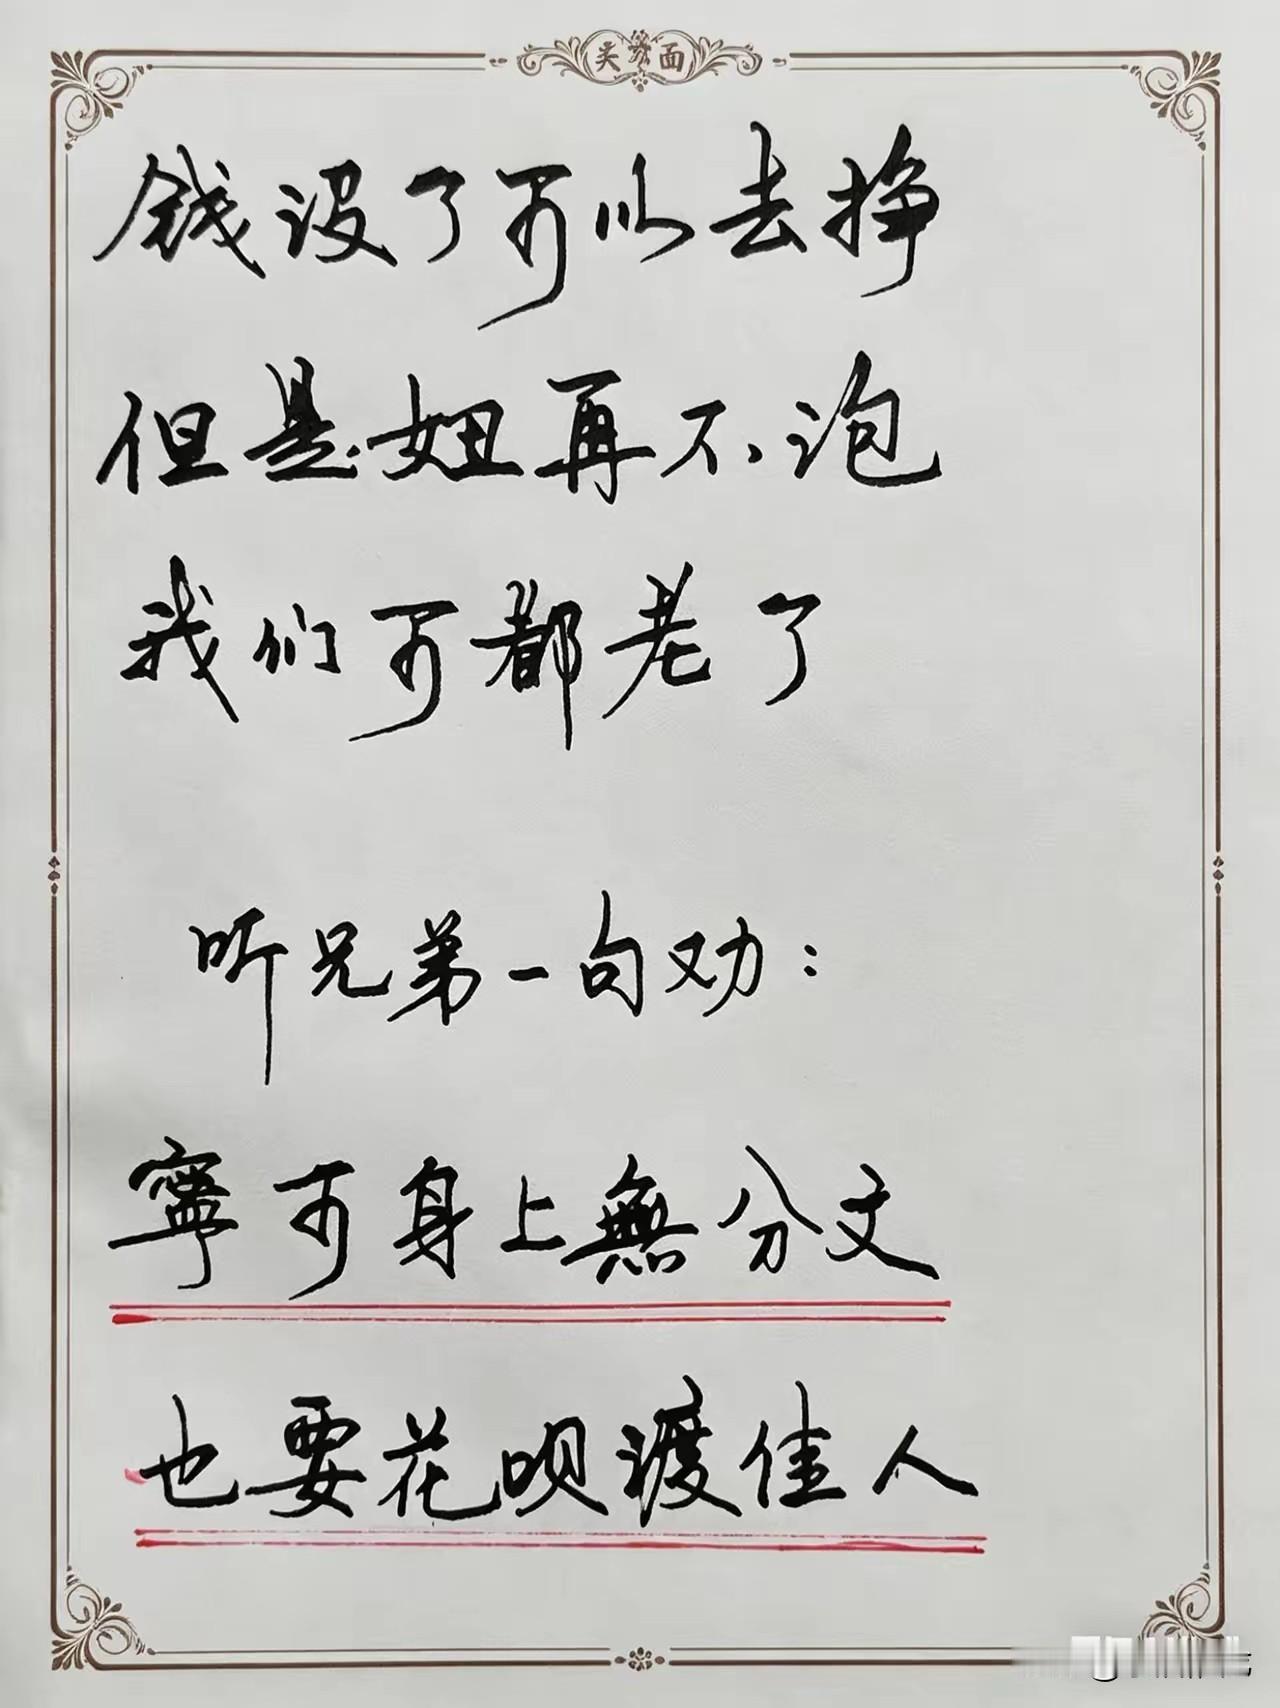 钱没了可以去挣
但是妞再不泡
我们可都老了
听兄弟一句劝：
寧可身上無分文
也要花呗渡佳人